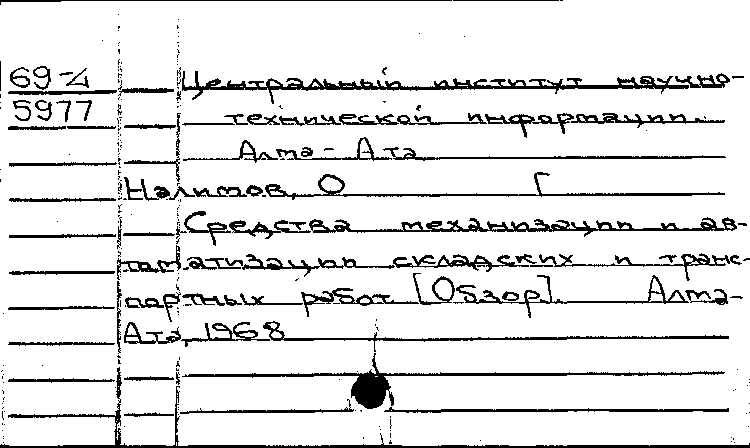 69-4 Центральный институт научно-
5977 технической информации.
Алма-Ата
Налимов, О Г
Средства механизации и ав-
томатизации складских и транс-
портных работ [Обзор]. Алма-
Ата, 1968